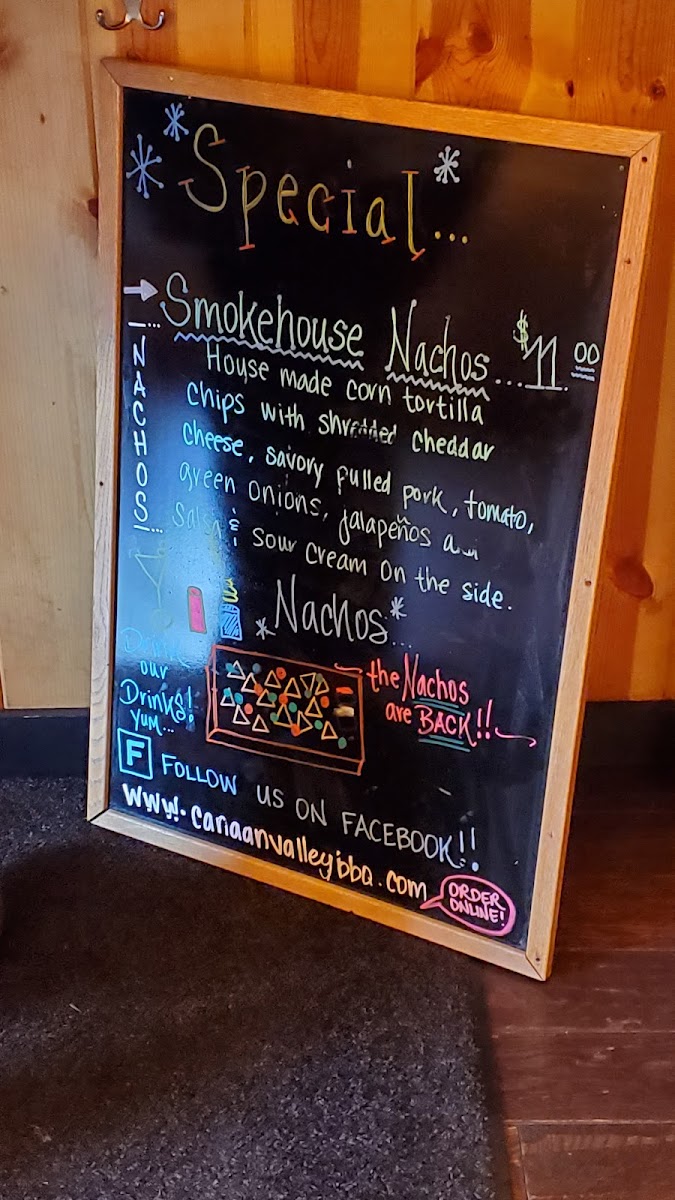 Special...
Smokehouse Nachos... $11.00
NACHOS...
House made corn tortilla
chips with shredded cheddar
cheese, savory pulled pork, tomato,
green onions, jalapeños
Salsa & sour cream on the side.
*Nachos*...
our
Drinks!
YUM...
the Nachos
are BACK!!
F FOLLOW US ON FACEBOOK!!
www.canaanvalleybbq.com
ORDER
ONLINE!